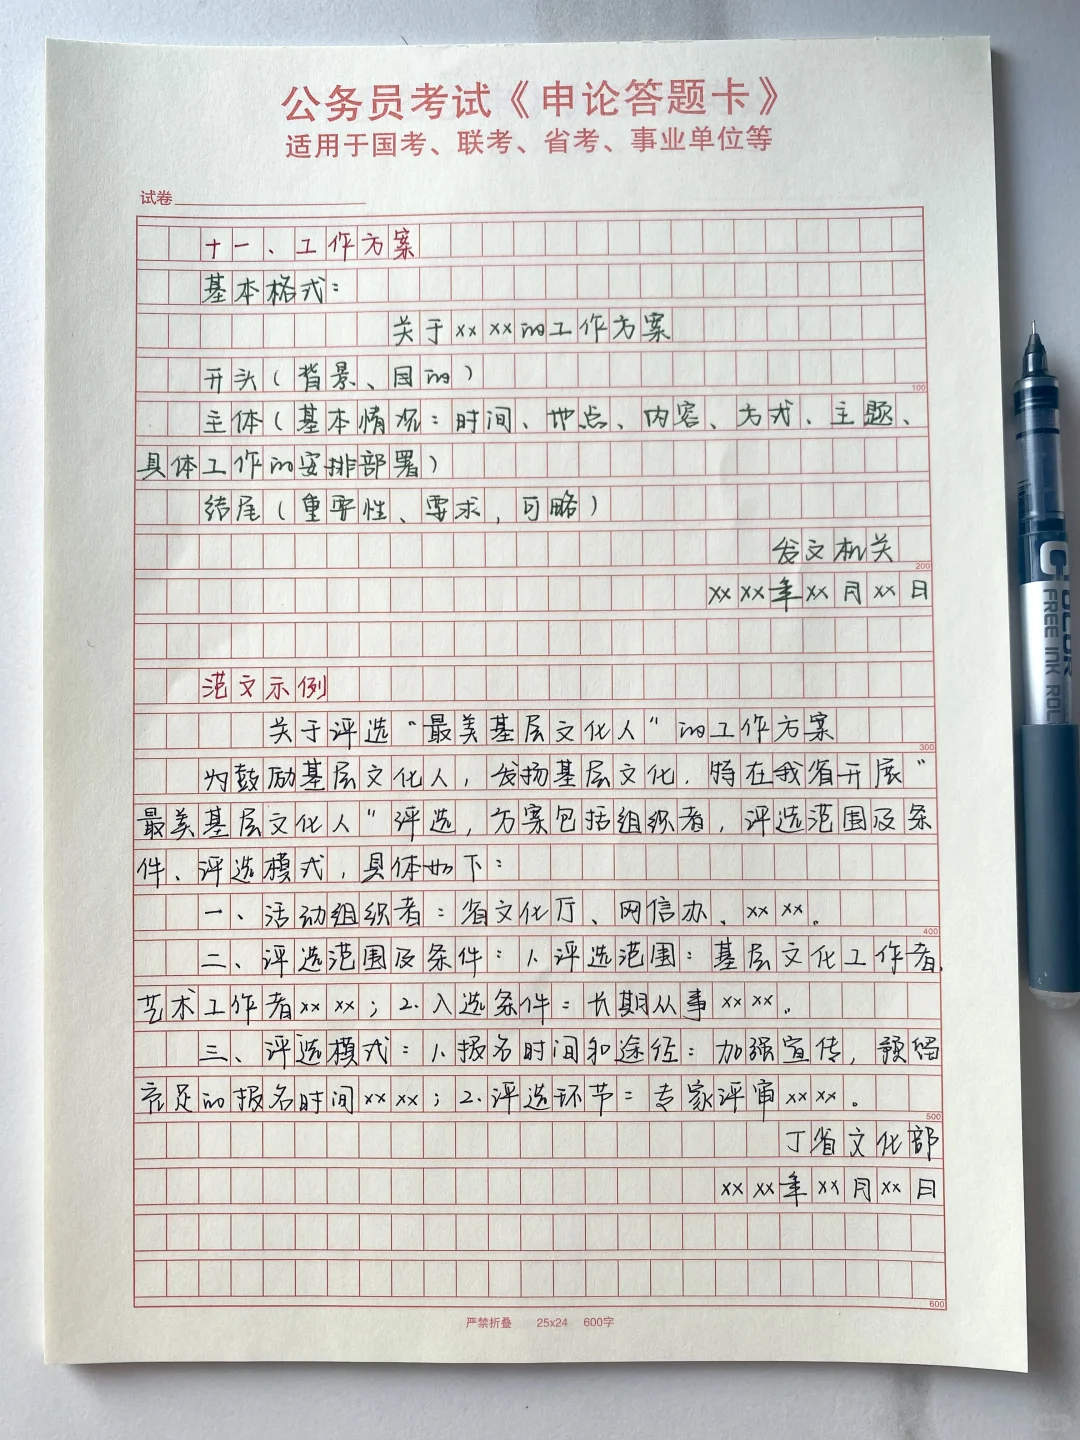 公务员考试《申论答题卡》
适用于国考、联考、省考、事业单位等
试卷
十一、工作方案
基本格式：
关于xx xx的工作方案
开头（背景、目的）
100
主体（基本情况：时间、地点、内容、方式、主题、
具体工作的安排部署）
结尾（重要性、要求，可略）
发文机关
200
xx xx年xx月xx日
范文示例
关于评选“最美基层文化人”的工作方案
300
为鼓励基层文化人，发扬基层文化，特在我省开展“
最美基层文化人”评选，方案包括组织者，评选范围及条
件、评选模式，具体如下：
一、活动组织者：省文化厅、网信办、xx xx。
400
二、评选范围及条件：1.评选范围：基层文化工作者、
艺术工作者xx xx；2.入选条件：长期从事xx xx。
三、评选模式：1.报名时间和途径：加强宣传，预留
充足的报名时间xx xx；2.评选环节：专家评审xx xx。
500
丁省文化部
xx xx年xx月xx日
600
严禁折叠 25x24 600字
FREE INK ROL